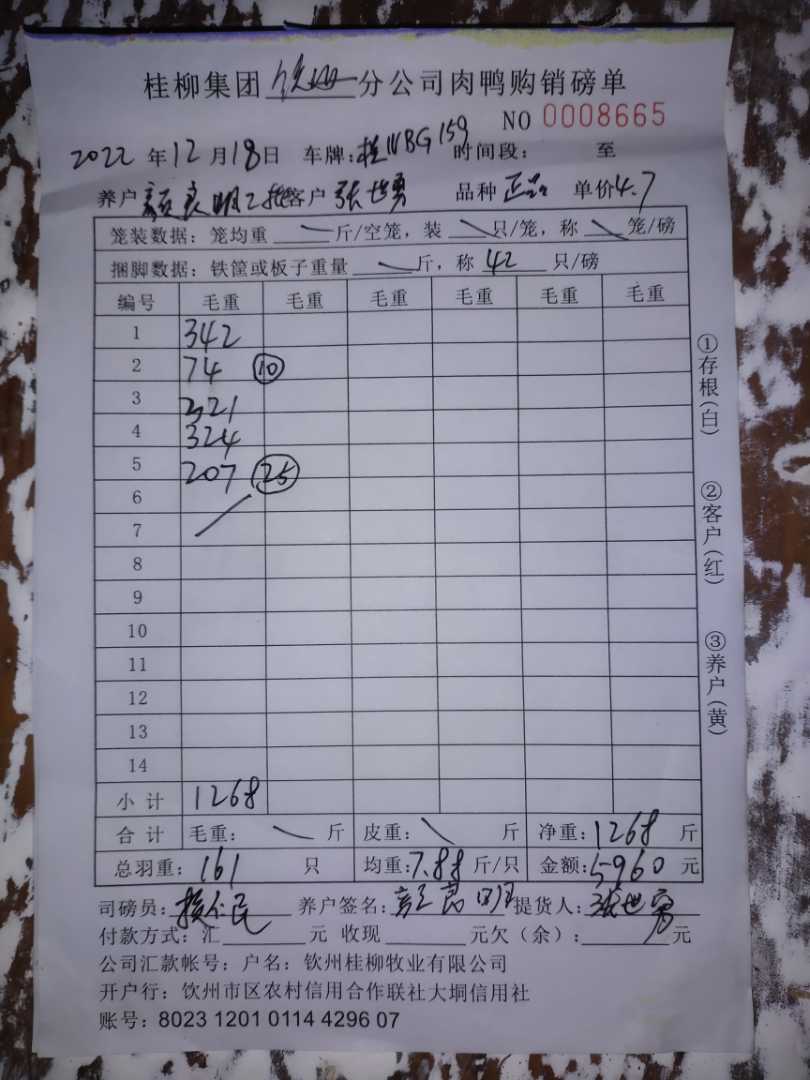 桂柳集团 钦州 分公司肉鸭购销磅单
NO 0008665
2022 年 12 月 18 日 车牌: 桂WBG159 时间段: 至
养户 良明 客户 张世勇 品种 正品 单价 4.7
笼装数据: 笼均重 斤/空笼, 装 只/笼, 称 笼/磅
捆脚数据: 铁筐或板子重量 斤, 称 42 只/磅
编号 毛重 毛重 毛重 毛重 毛重 毛重
1 342
2 74 10
3 321
4 324
5 207 25
6
7
8
9
10
11
12
13
14
小 计 1268
合 计 毛重: 斤 皮重: 斤 净重: 1268 斤
总羽重: 161 只 均重: 7.88 斤/只 金额: 5960 元
司磅员: 养户签名: 提货人: 张世勇
付款方式: 汇 元 收现 元欠(余): 元
公司汇款帐号: 户名: 钦州桂柳牧业有限公司
开户行: 钦州市区农村信用合作联社大垌信用社
账号: 8023 1201 0114 4296 07
①存根(白)
②客户(红)
③养户(黄)